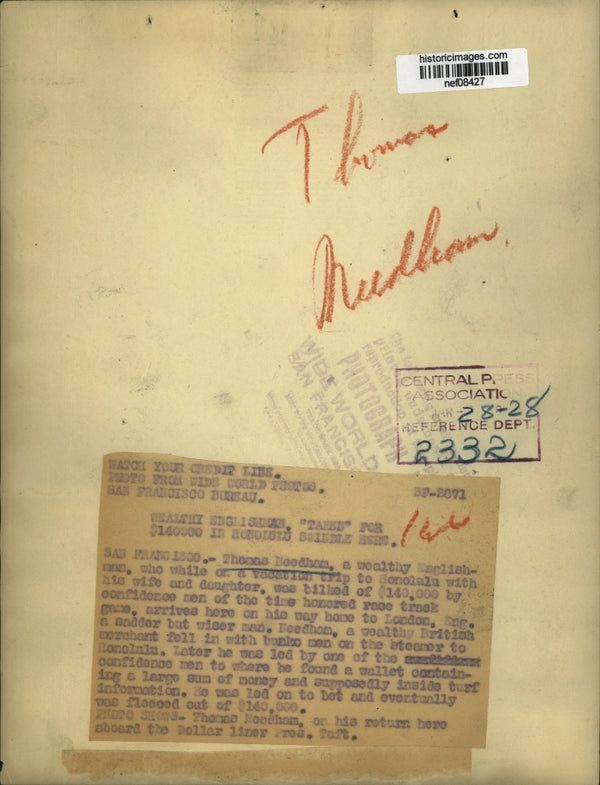 historicimages.com
nef08427
Thomas
Needham.
PHOTOGRAPH
WIDE WORLD
SAN FRANCISCO
CENTRAL PRESS
ASSOCIATIO
MAR 28-28
REFERENCE DEPT.
2332
WATCH YOUR CREDIT LINE.
PHOTO FROM WIDE WORLD PHOTOS.
SAN FRANCISCO BUREAU. SF-2871
WEALTHY ENGLISHMAN, "TAKEN" FOR
$140000 IN HONOLULU SWINDLE HERE.
SAN FRANCISCO.- Thomas Needham, a wealthy English-
man, who while on a vacation trip to Honolulu with
his wife and daughter, was bilked of $140,000 by
confidence men of the time honored race track
game, arrives here on his way home to London, Eng.
a sadder but wiser man. Needham, a wealthy British
merchant fell in with bunko men on the steamer to
Honolulu. Later he was led by one of the
confidence men to where he found a wallet contain-
ing a large sum of money and supposedly inside turf
information. He was led on to bet and eventually
was fleeced out of $140,000.
PHOTO SHOWS- Thomas Needham, on his return here
aboard the Dollar liner Pres. Taft.